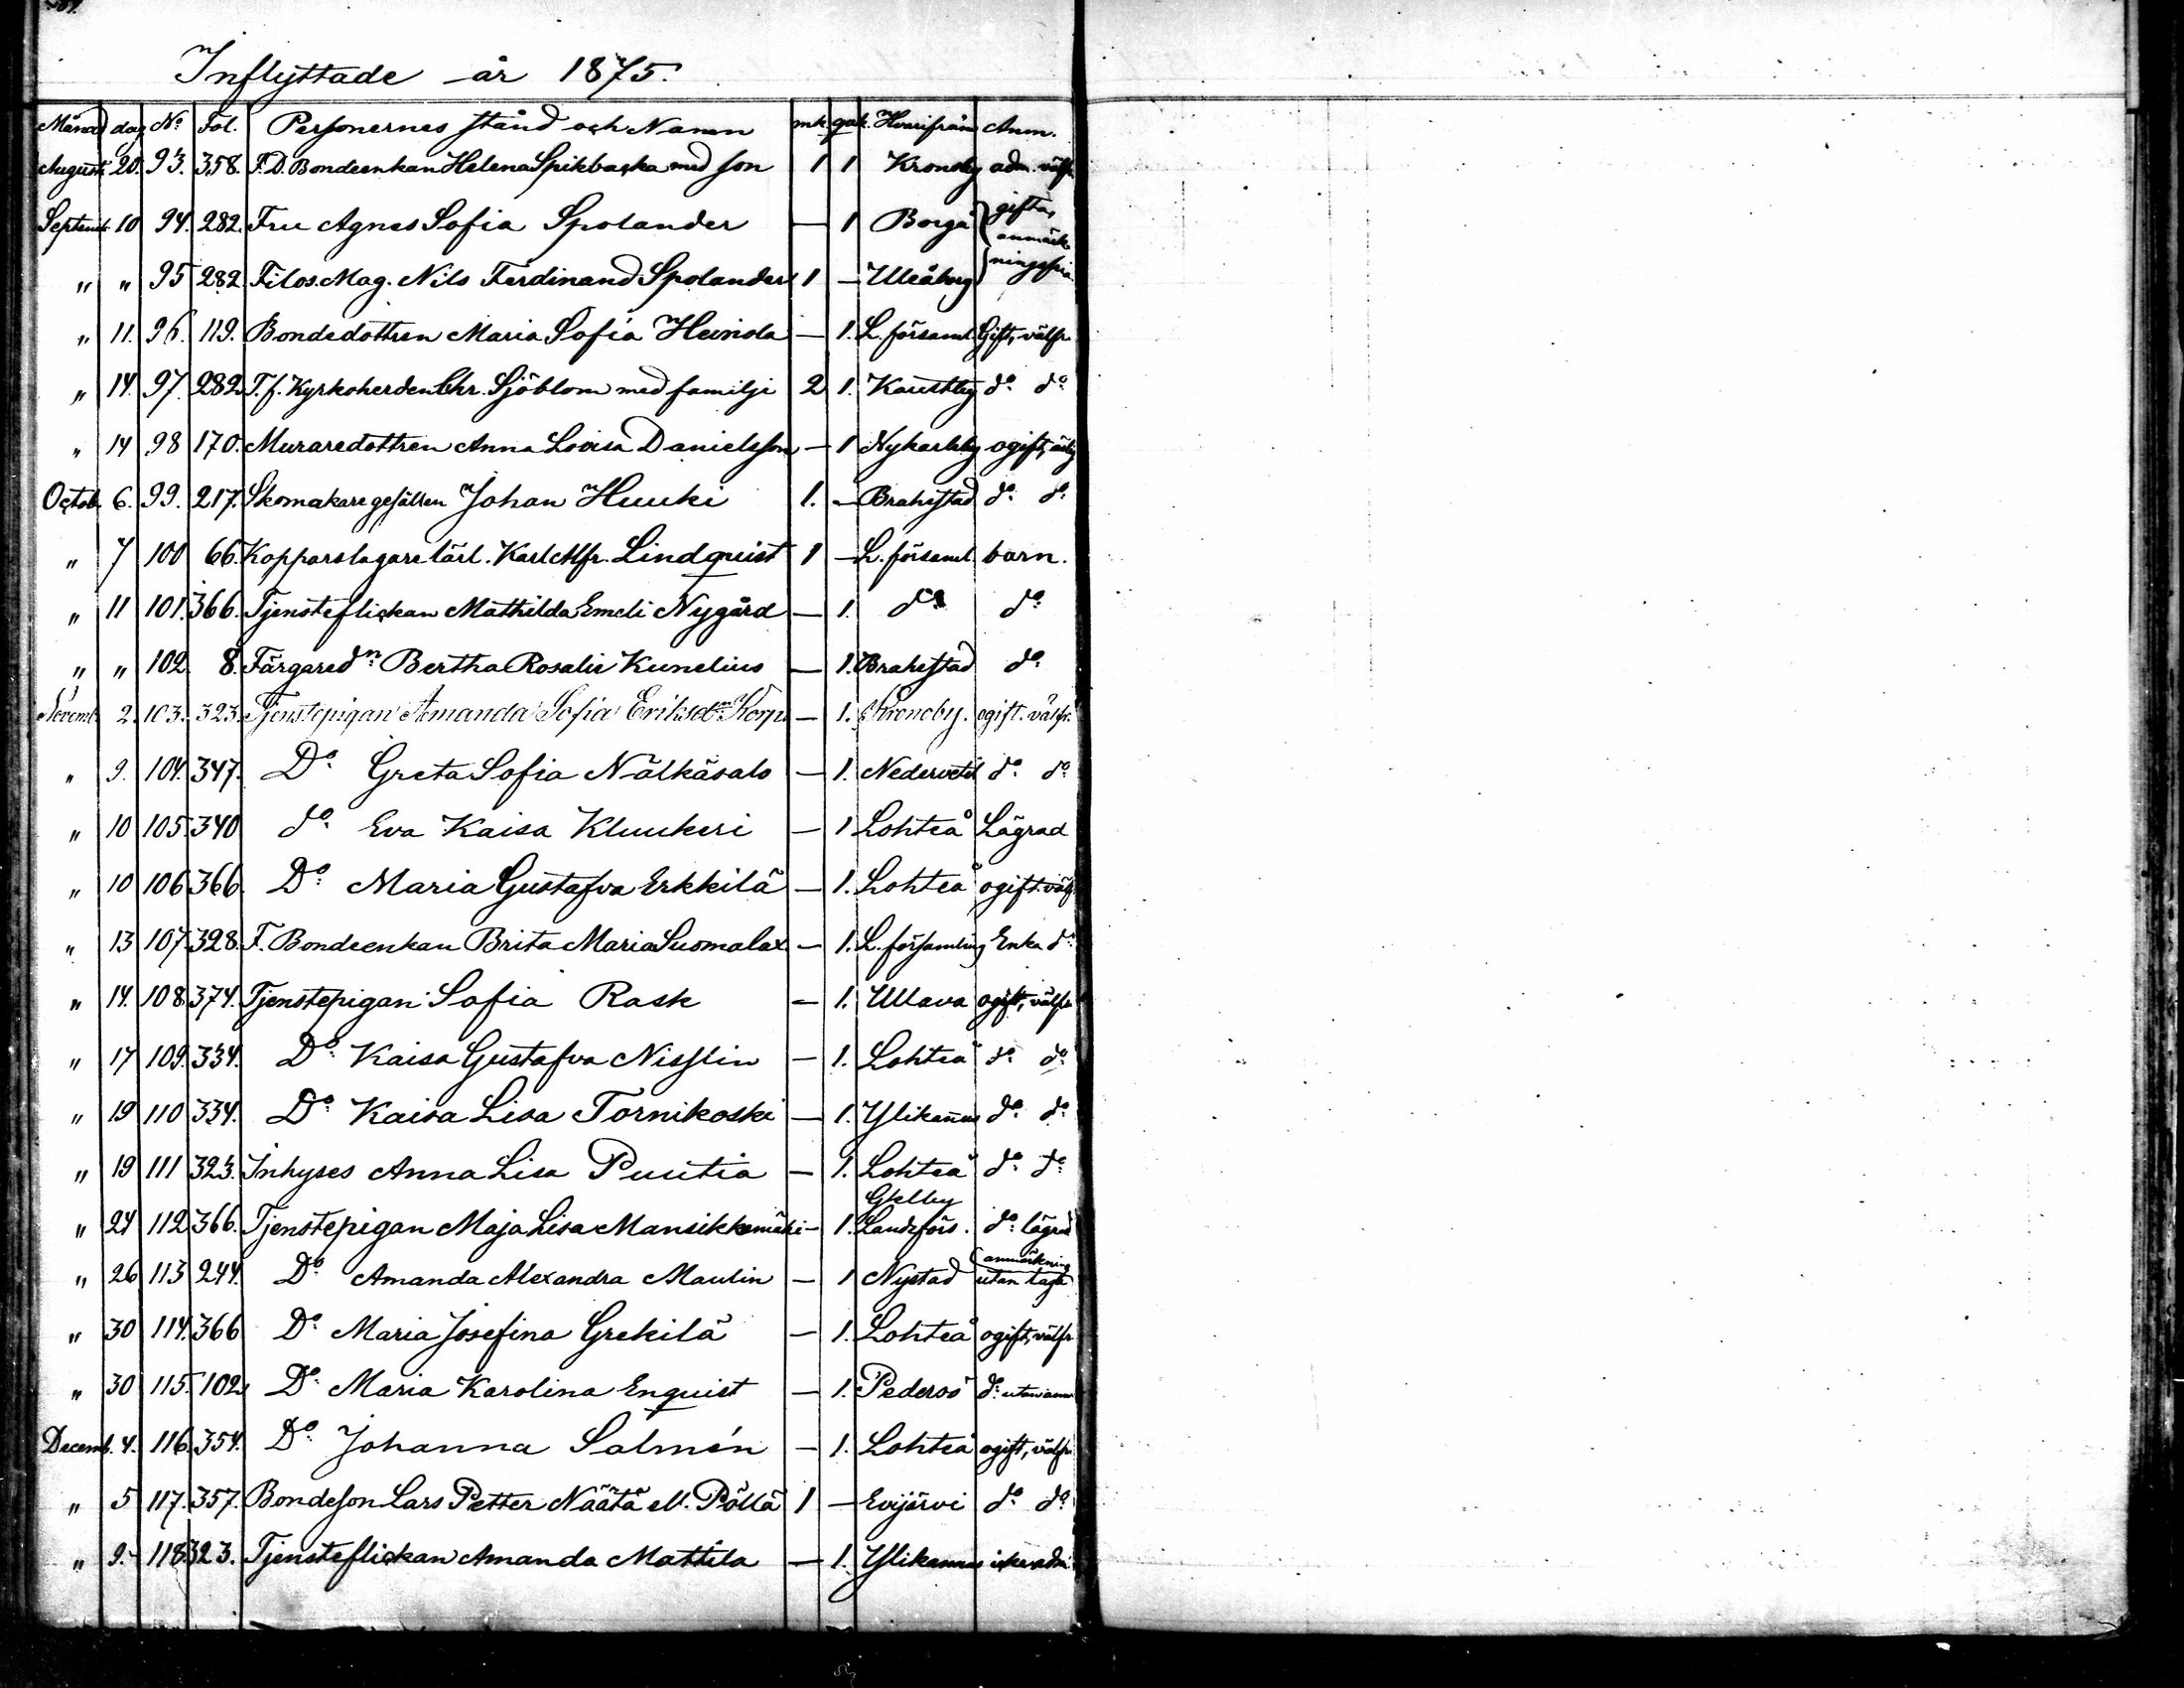 Inflyttade år 1875.
Månad dag No Fol. Personernes stånd och Namn mk. qvk. Hvarifrån Anm.
August. 20. 93. 358. F. D. Bondeenkan Helena Spikbacka med son 1 1 Kronoby adm. välfr.
Septemb. 10 94. 282. Fru Agnes Sofia Spolander — 1 Borgå gifta, anmärk-
" " 95 282. Filos. Mag. Nils Ferdinand Spolander 1 — Uleåborg ningsfria
" 11. 96. 119. Bondedottren Maria Sofia Heinola — 1. L. församl. Gift, välfr.
" 14. 97 282. T. f. Kyrkoherden Chr. Sjöblom med familje 2 1. Kaustby do do
" 14 98 170. Muraredottren Anna Lovisa Danielsson — 1 Nykarleby ogift,
Octob. 6. 99. 217. Skomakaregesällen Johan Huuki 1. — Brahestad do do
" 7 100 66. Kopparslagarelärl. Karl Alfr. Lindquist 1 — L. församl. barn.
" 11 101. 366. Tjensteflickan Mathilda Emeli Nygård — 1. do do
" " 102. 8. Färgaredn Bertha Rosalie Kunelius — 1. Brahestad do
Novemb. 2. 103. 323. Tjenstepigan Amanda Sofia Eriksdn Korp — 1. Kronoby. ogift. välfr.
" 9. 104. 347. Do Greta Sofia Nälkäsalo — 1. Nedervetil do do
" 10 105. 340 do Eva Kaisa Kluukeri — 1 Lohteå Lägrad
" 10 106 366. Do Maria Gustafva Erkkilä — 1. Lohteå ogift. välfr
" 13 107. 328. F. Bondeenkan Brita Maria Suomalax — 1. L. församling Enka do
" 14. 108. 374. Tjenstepigan Sofia Rask — 1. Ullava ogift, välfr
" 17 109. 334. Do Kaisa Gustafva Nisslin — 1. Lohteå do do
" 19 110 334. Do Kaisa Lisa Tornikoski — 1. Ylikanus do do
" 19 111 323. Inhyses Anna Lisa Puutia — 1. Lohteå do do
" 24 112 366. Tjenstepigan Maja Lisa Mansikkamäki — 1. Gkelby Landsförs. do lägrad
" 26 113 244. Do Amanda Alexandra Maulin — 1 Nystad anmärkning utan laga
" 30 114. 366 Do Maria Josefina Grekilä — 1. Lohteå ogift, välfr
" 30 115. 102. Do Maria Karolina Enquist — 1. Pedersö do utan anm
Decemb. 4. 116. 354. Do Johanna Salmén — 1. Lohteå ogift, välfr.
" 5 117. 357. Bondeson Lars Petter Näätä ell. Pöllä 1 — Evijärvi do do
" 9. 118. 323. Tjensteflickan Amanda Mattila — 1. Ylikannus icke adm.